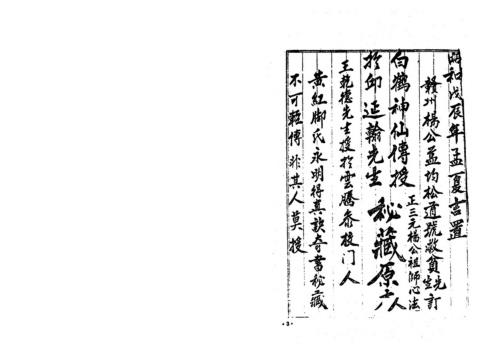 昭和戊辰年孟夏吉置
贛州楊公益均松道號救貧先生訂
正三元楊公祖師心法
白鶴神仙傳授
於邱延翰先生 秘藏原
王乾德先生授於雲騰
門人
黃紅脚氏永明得真訣奇書秘藏
不可輕傳 非其人莫授
3